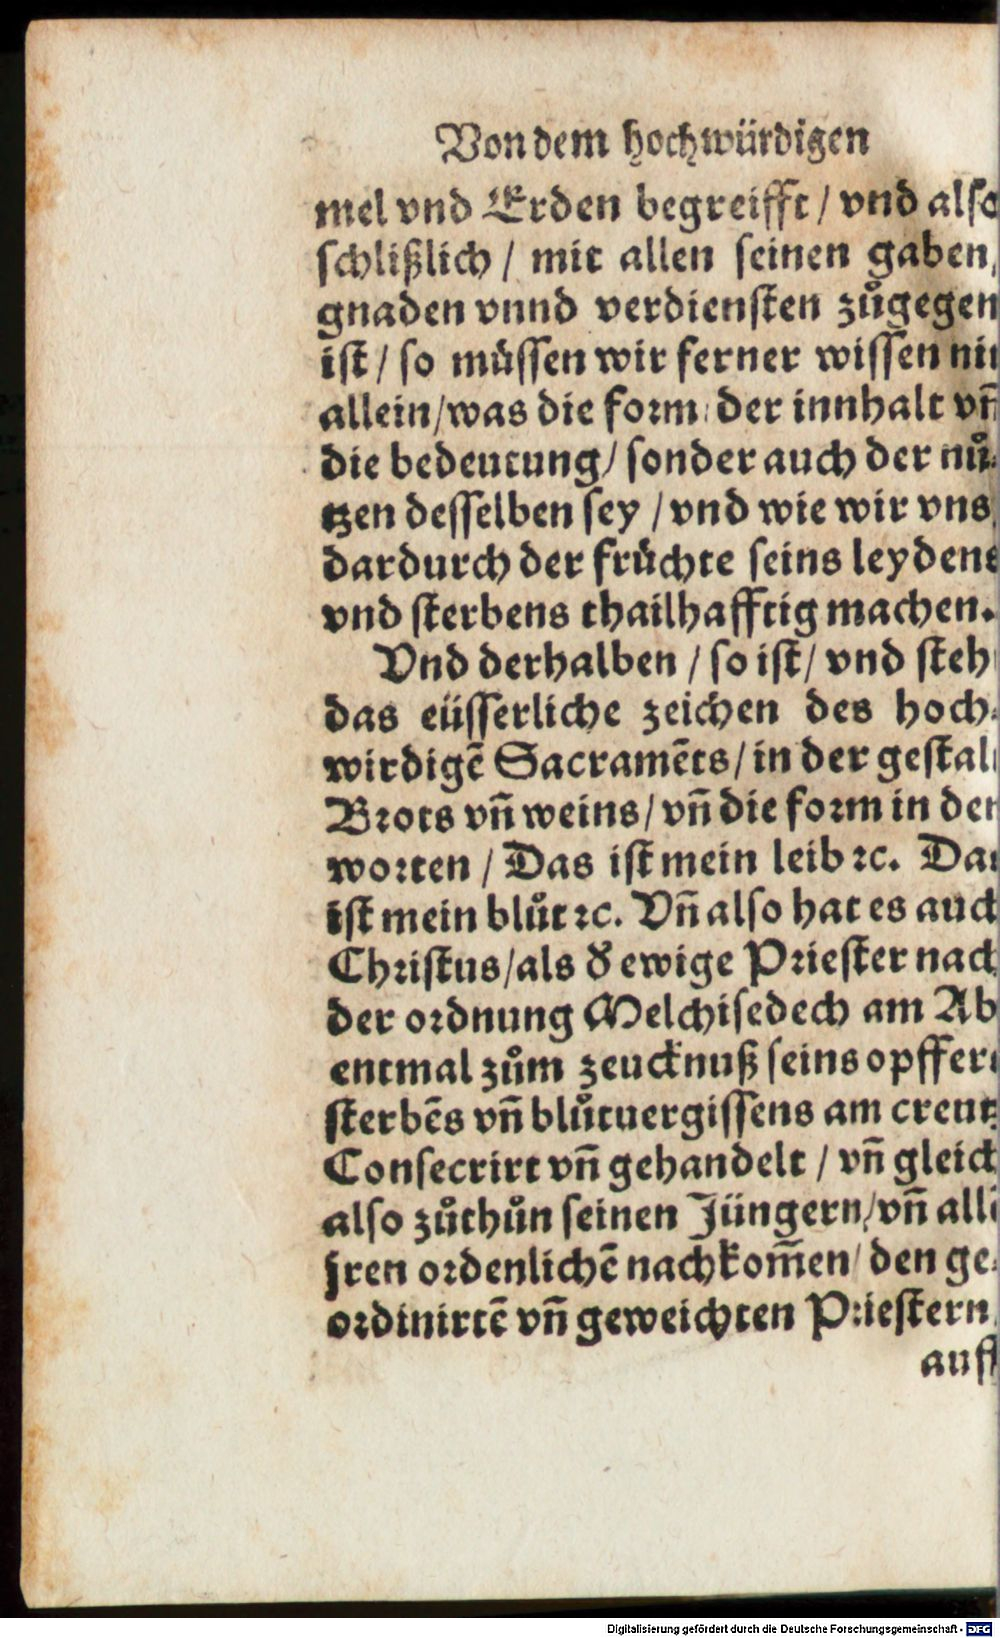 Von dem hochwürdigen
mel vnd Erden begreifft / vnd also
schlißlich / mit allen seinen gaben,
gnaden vnnd verdiensten zůgegen
ist / so müssen wir ferner wissen
allein / was die form der innhalt vñ
die bedeutung / sonder auch der nů⸗
tzen desselben sey / vnd wie wir vns
dardurch der früchte seins leydens
vnd sterbens thailhafftig machen.
Vnd derhalben / so ist / vnd steh
das eüsserliche zeichen des hoch⸗
wirdigẽ Sacramẽts / in der gestal
Brots vñ weins / vñ die form in den
worten / Das ist mein leib ꝛc. Das
ist mein blůt ꝛc. Vñ also hat es auch
Christus / als d' ewige Priester nach
der ordnung Melchisedech am Ab
entmal zům zeucknuß seins opffers
sterbẽs vñ blůtuergissens am creutz
Consecrirt vñ gehandelt / vñ gleich
also zůthůn seinen Jüngern / vñ allẽ
jren ordenlichẽ nachkom̃en / den ge⸗
ordinirtẽ vñ geweichten Priestern
auff
Digitalisierung gefördert durch die Deutsche Forschungsgemeinschaft - DFG